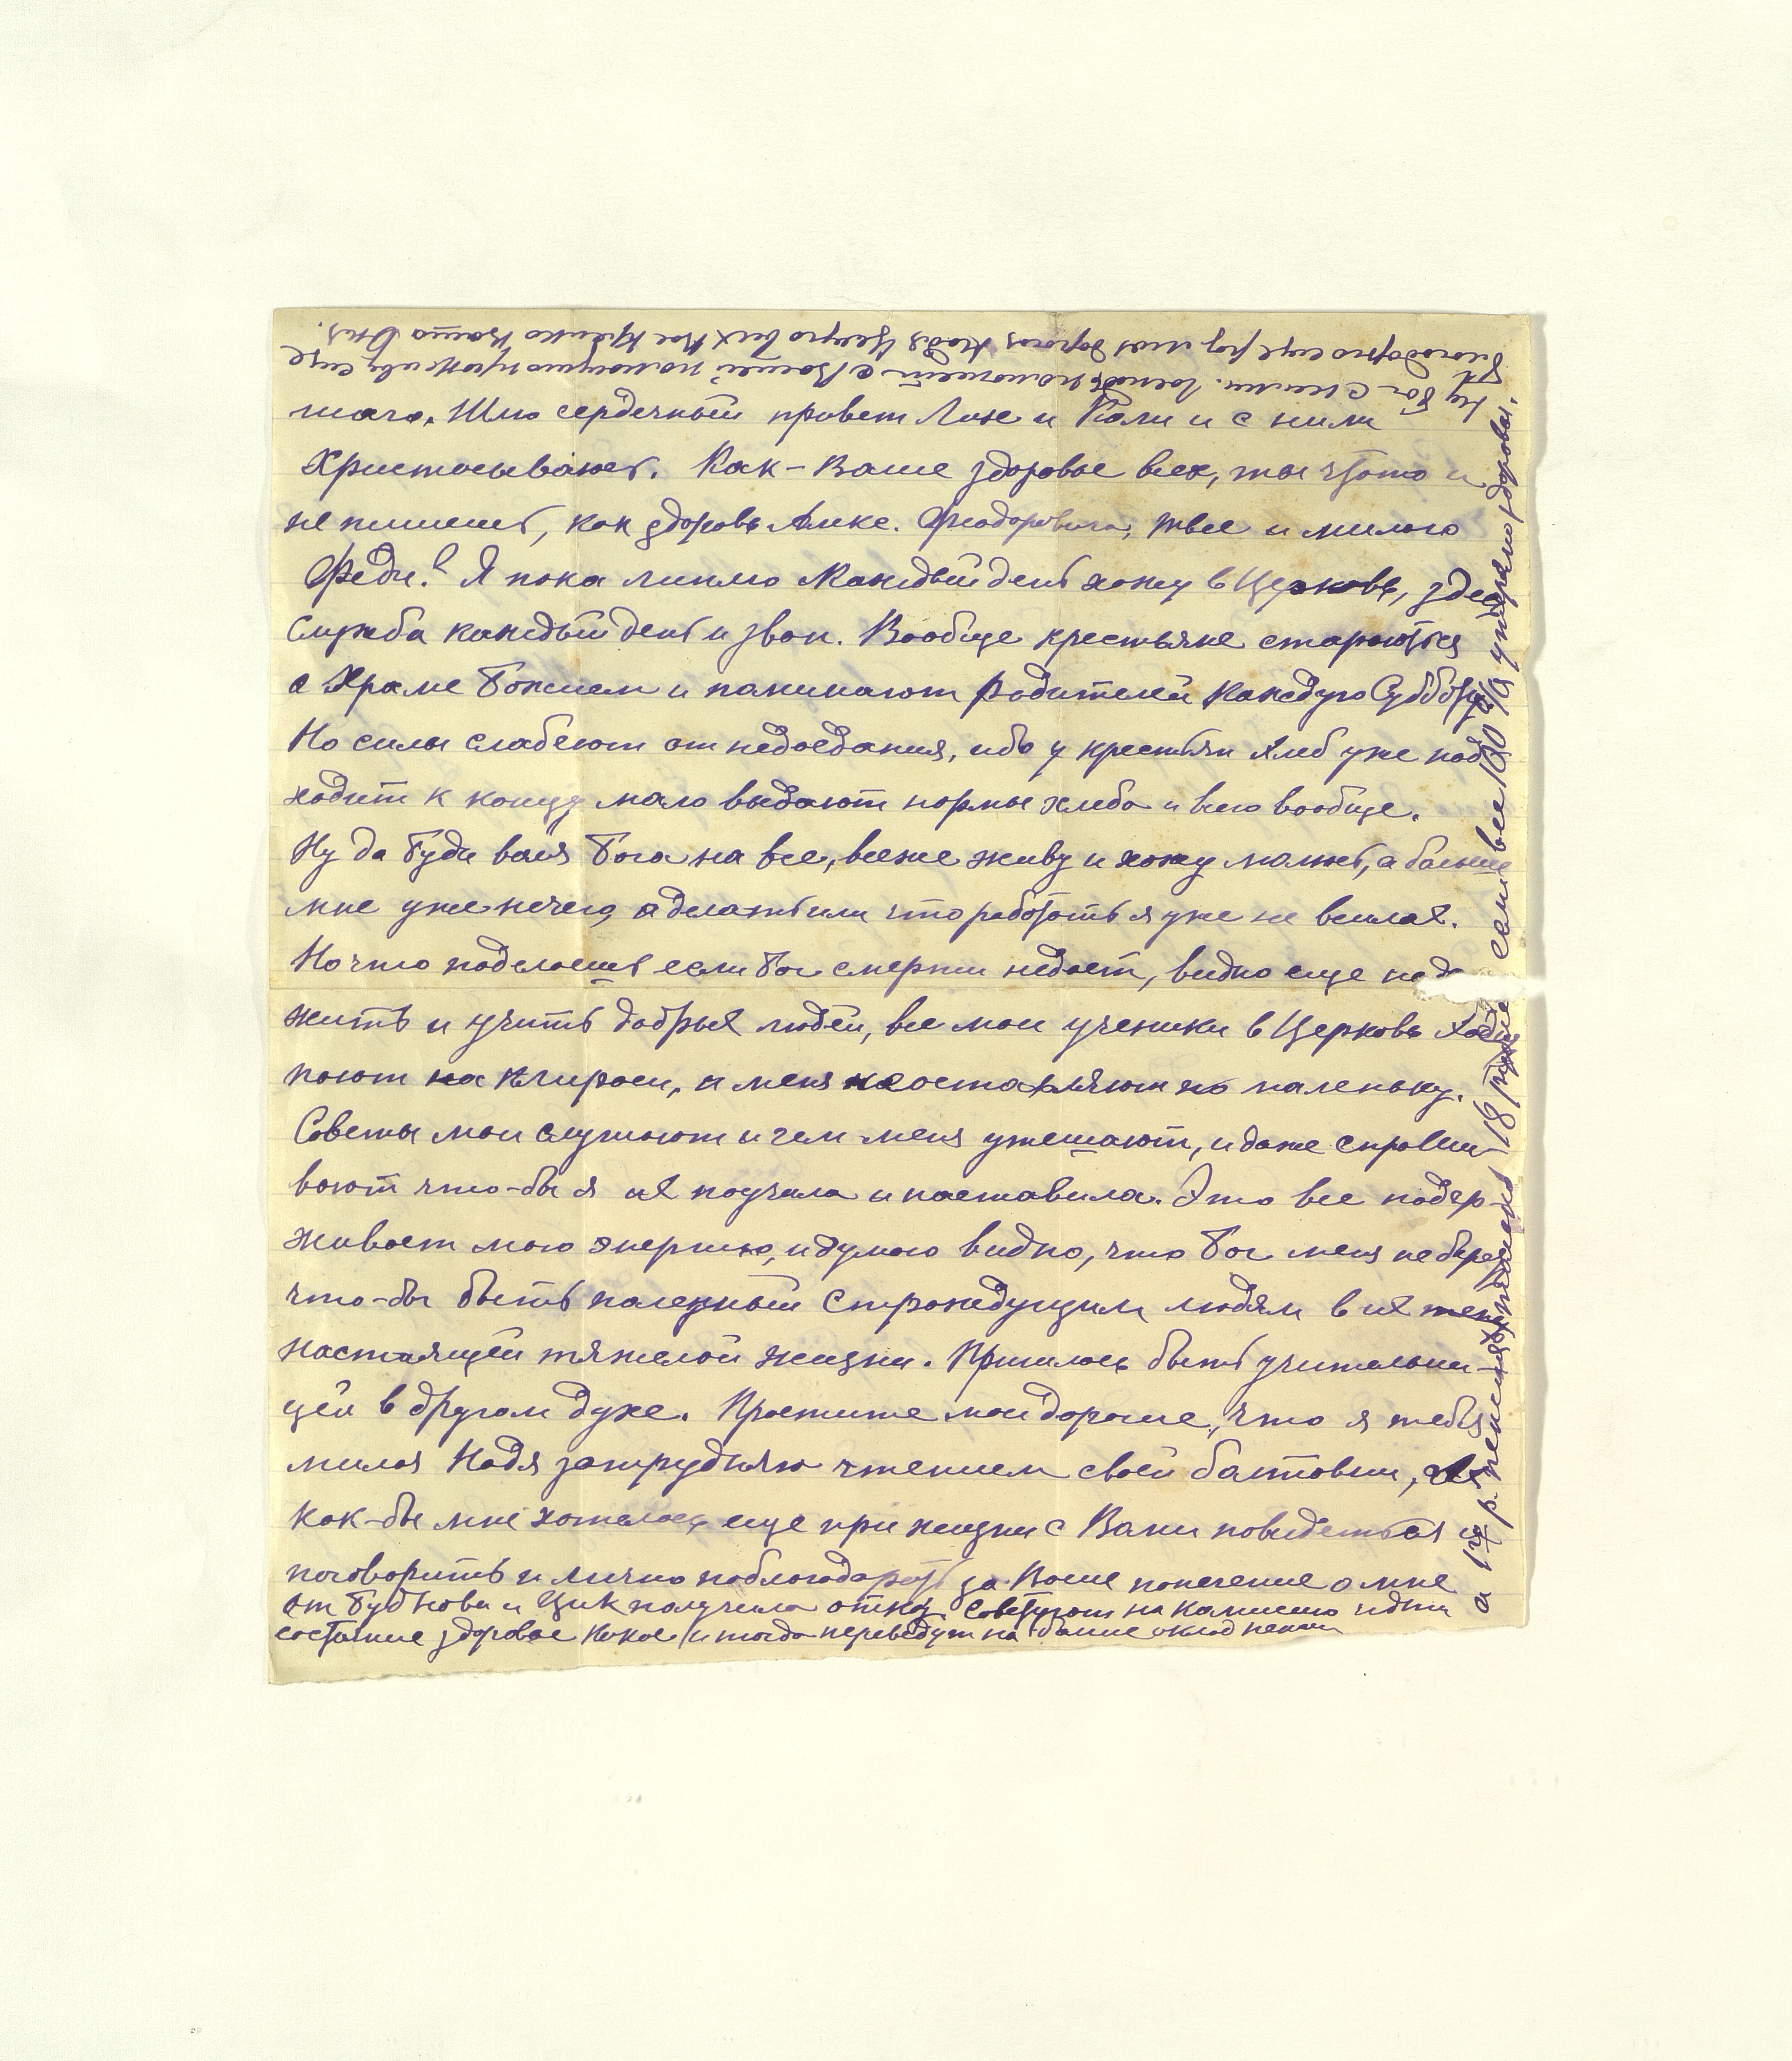 шаго. Шлю сердечный привет Лине и Коли и с ними
Христосываюсь. Как-Ваше здоровье всех, ты что-то и
не пишешь, как здоровь Алекс. Феодоровича, твое и милого
Феди? Я пока ничего каждый день хожу в Церковь, здесь
служба каждый день и звон. Вообще крестьяне стараются
о Храме Божием и поминают родителей каждую Субботу
Но силы слабеют от недоедания, ибо у крестьян хлеб уже под
ходит к концу мало выдают нормы хлеба и всего вообще.
Ну да буди воля Бога на все, все же живу и хожу молюсь, а больше
мне уже нечего, а делать или что работать я уже не в силах.
Но что поделаешь если Бог смерти недает, видно еще надо
жить и учить добрых людей, все мои ученики в Церковь ходят
поют на клиросе, и меня не оставляют по маленьку.
Советы мои слушают и чем меня утешают, и даже спраши
вают что-бы я их поучала и наставила. Это все подер-
живает мою энергию, и думаю видно, что Бог меня не берет
что-бы быть полезной страждущим людям в их
настоящей тяжелой жизни. Пришлось быть учительни-
цей в другом духе. Простите мои дорогие, что я тебя
милая Надя затрудняю чтением своей болтовни, Ах
как-бы мне хотелось еще при жизни с Вами повидаться и
поговорить и лично поблагодарить за Ваше попечение о мне
От Бубнова и Цик получила отказ. Советуют на комиссию идти
состояние здоровье какое и тогда переведут на оклад пенсии
а 17 р. пенсия 18 рублей все 100% утеряно здоровья.
Ну Бог с ними. Господь поможет с Вашей помощию проживу еще
благодарю еще раз моя дорогая Надя Целую всех Вас крепко Ваша Оля.